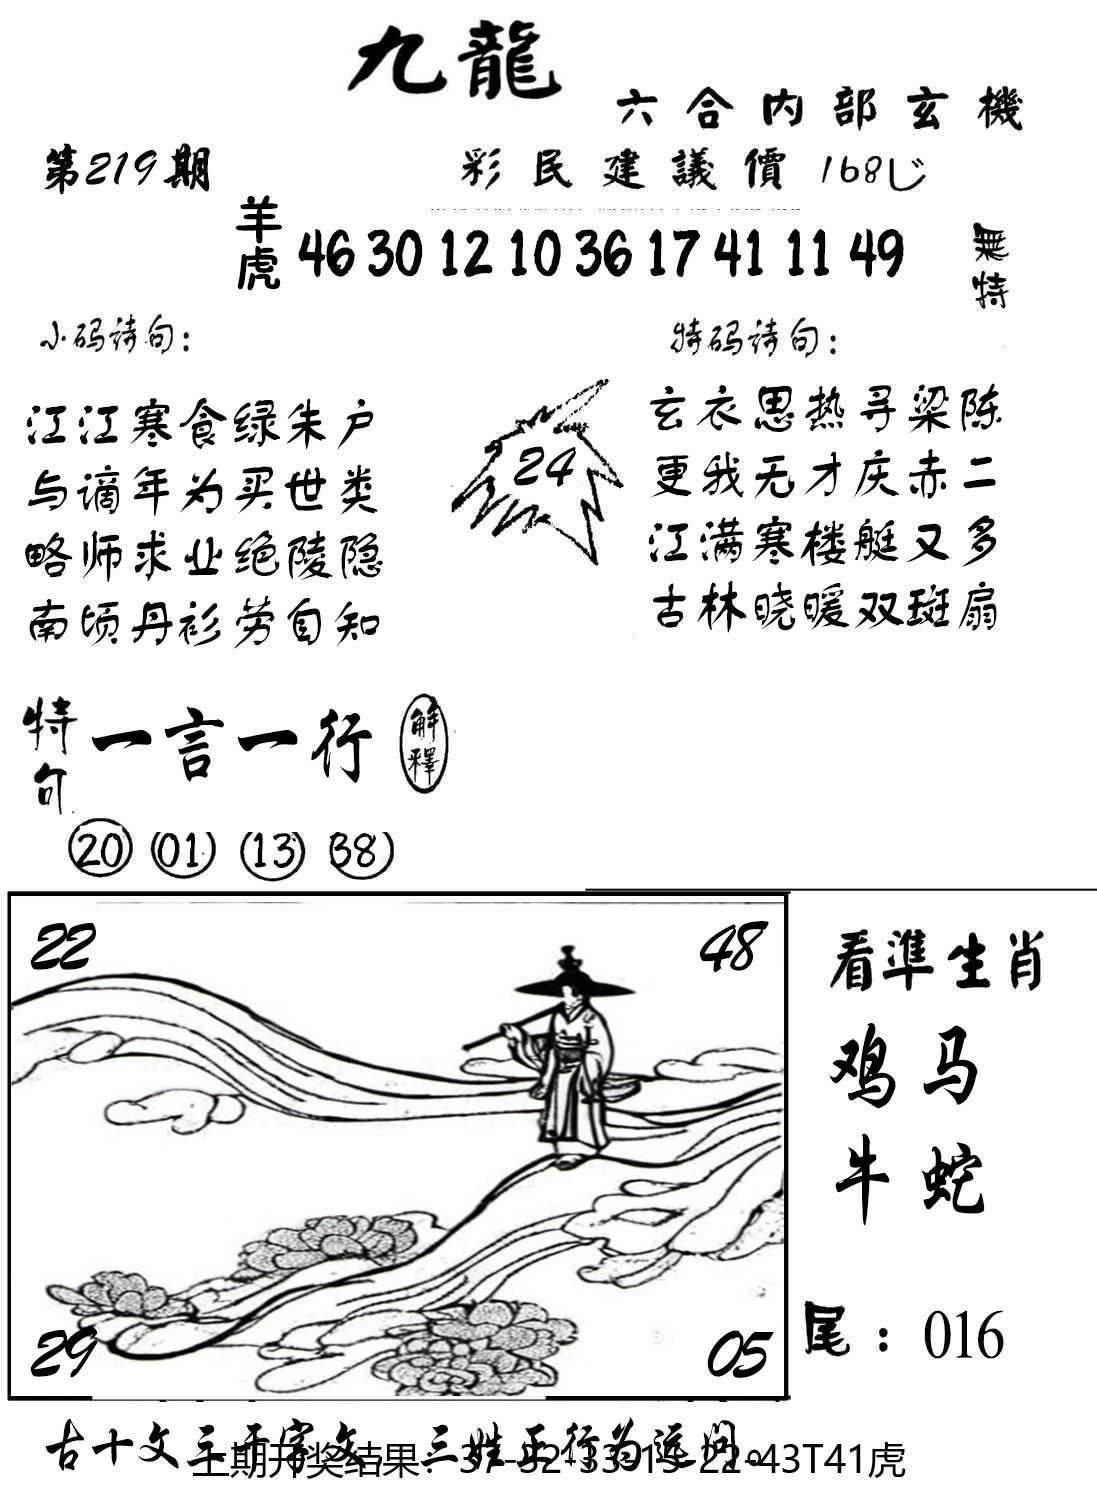 九龍
六合内部玄機
第219期
彩民建議價168
羊虎 46 30 12 10 36 17 41 11 49
無特
小码诗句：
特码诗句：
江江寒食绿朱户
与谪年为买世类
略师求业绝陵隐
南顷丹衫劳自知
24
玄衣思热寻梁陈
更我无才庆赤二
江满寒楼艇又多
古林晓暖双斑扇
特句 一言一行 解釋
20 01 13 38
22
48
29
05
看準生肖
鸡马
牛蛇
尾：016
古十文三千字文 三姓正行为运问。
上期开奖结果：37-32-33-15-22-43T41虎